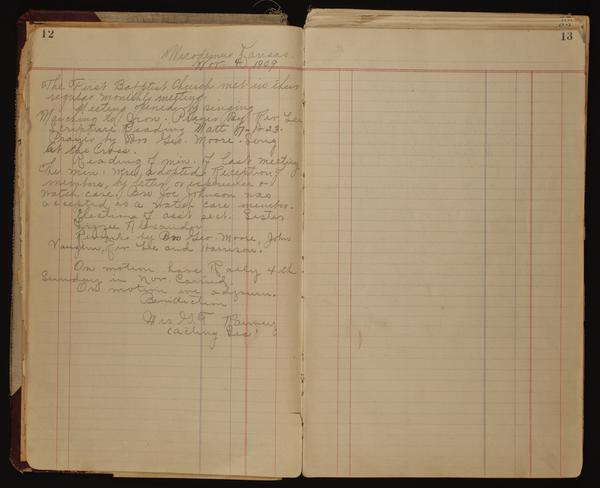 12
Nicodemus Kansas
Nov. 4, 1909
The First Baptist Church met in their
regular monthly meeting.
Meeting opened by singing
Marching to Zion. Prayer By Rev Lee
Scripture Reading Matt 17-1-23.
Prayer by Bro Geo. Moore. Song
at the Cross.
Reading of min. of last meeting
The min. were adopted. Reception of
members, by letter or experience or
watch care. Bro Joe Johnson was
accepted as a watch care member.
Election of ass't sect. Sister
Alexander
Remarks by Bro Geo. Moore, John
Vaughn, Rev Lee and Harrison.
On motion have Rally 4th
Sunday in Nov. Carried.
On motion we adjourn.
Benediction
Mrs G.T.
(acting Sec'
13